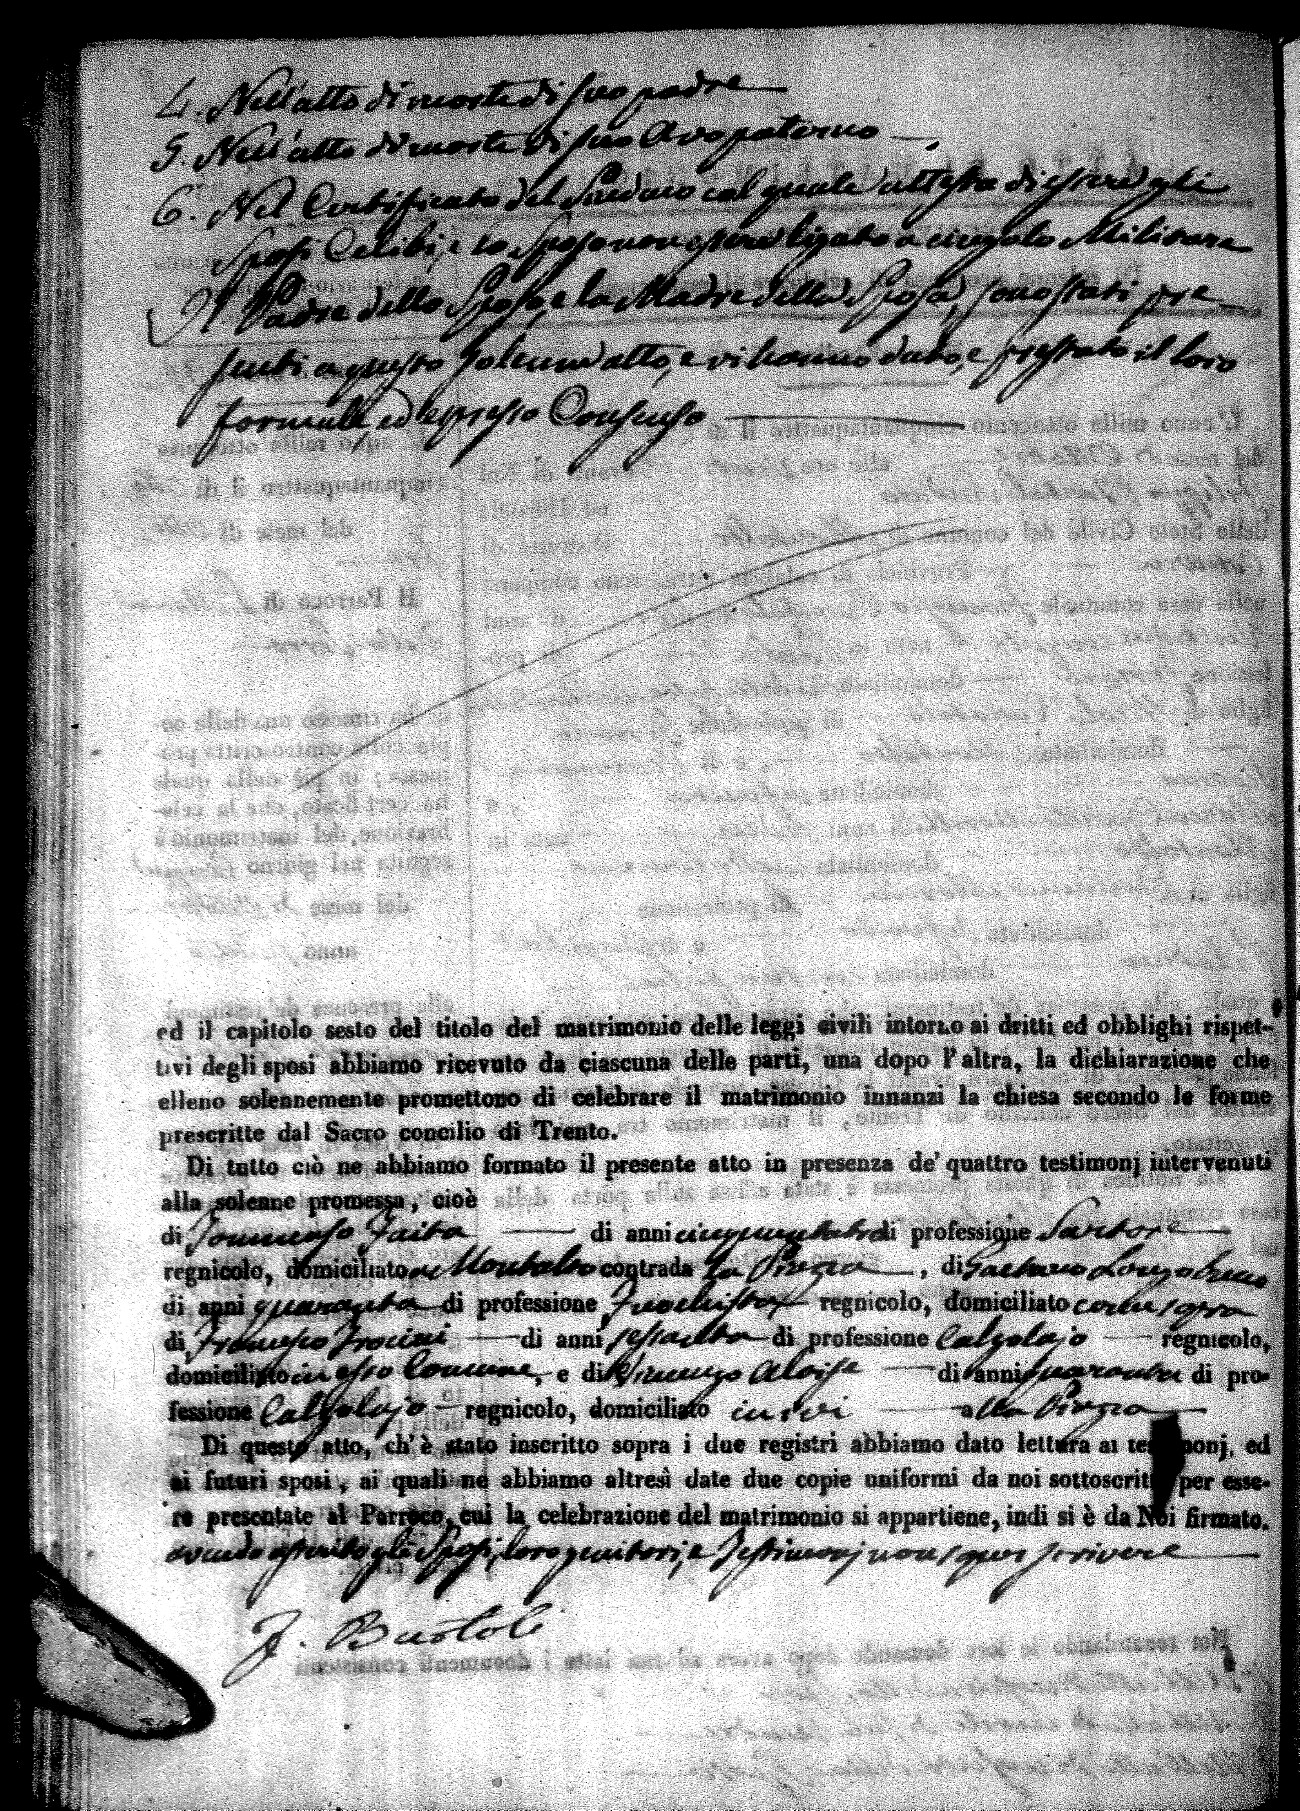 4. Nell'atto di morte di suo padre
5. Nell'atto di morte di suo Avo paterno
6. Nel Certificato del Sindaco col quale attesta di essere gli
Sposi Celibi, e lo Sposo non essere ligato a cingolo Militare
Il Padre dello Sposo, e la Madre della Sposa, sono stati pre-
senti a questo solenne atto, e vi hanno dato, e prestato il loro
formale ed espresso Consenso
ed il capitolo sesto del titolo del matrimonio delle leggi civili intorno ai dritti ed obblighi rispet-
tivi degli sposi abbiamo ricevuto da ciascuna delle parti, una dopo l'altra, la dichiarazione che
elleno solennemente promettono di celebrare il matrimonio innanzi la chiesa secondo le forme
prescritte dal Sacro concilio di Trento.
Di tutto ciò ne abbiamo formato il presente atto in presenza de' quattro testimonj intervenuti
alla solenne promessa, cioè
di Tommaso Faita di anni di professione Sartore
regnicolo, domiciliato in Montalto contrada la Piazza, di Gaetano Longobucco
di anni quaranta di professione regnicolo, domiciliato come sopra
di Francesco Trocini di anni sessanta di professione Calzolajo regnicolo,
domiciliato in esso Comune, e di Vincenzo Aloise di anni quaranta di pro-
fessione Calzolajo regnicolo, domiciliato in ivi alla Piazza
Di questo atto, ch'è stato inscritto sopra i due registri abbiamo dato lettura ai testimonj, ed
ai futuri sposi, ai quali ne abbiamo altresì date due copie uniformi da noi sottoscritte per esse-
re presentate al Parroco, cui la celebrazione del matrimonio si appartiene, indi si è da Noi firmato.
avendo asserito gli Sposi, loro genitori, e Testimonj non saper scrivere
F. Bartoli